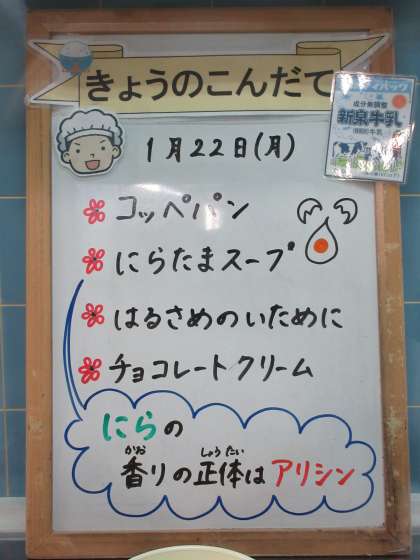 きょうのこんだて
成分無調整
新泉牛乳
1月22日(月)
コッペパン
にらたまスープ
はるさめのいために
チョコレートクリーム
にらの
香りの正体はアリシン
かお しょうたい